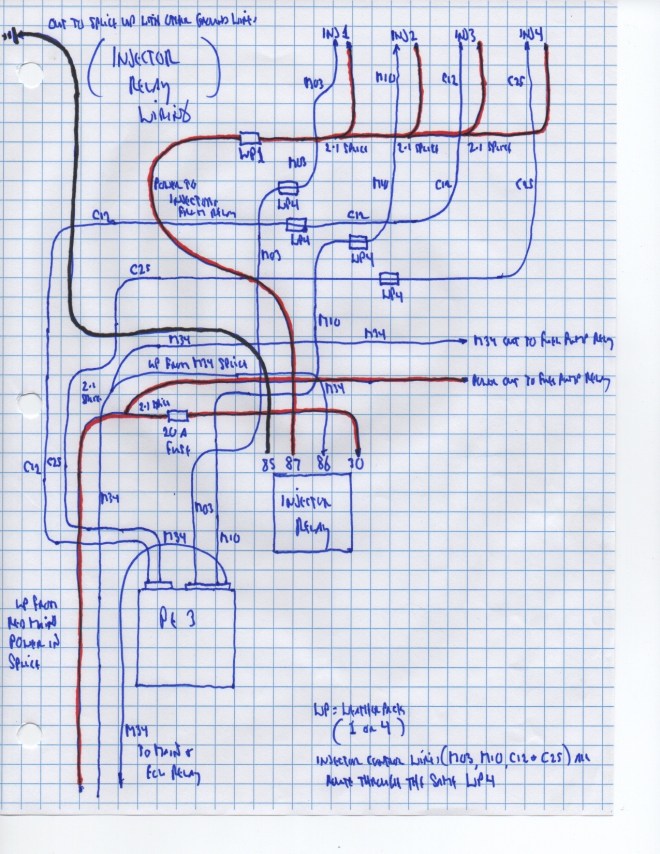 OUT TO SPLICE UP WITH OTHER GROUND LINES
INJECTOR
RELAY
WIRING
INJ1
INJ2
INJ3
INJ4
M03
M10
C12
C25
2-1 SPLICE
2-1 SPLICE
2-1 SPLICE
WP1
M03
POWER TO
INJECTORS
FROM RELAY
WP4
M10
C25
C12
C12
WP4
WP4
M03
C25
WP4
M10
M34
M34
M34 OUT TO FUEL PUMP RELAY
UP FROM M34 SPLICE
2-1
SPLICE
M34
POWER OUT TO FUEL PUMP RELAY
2-1 SPLICE
20A
FUSE
85
87
86
30
C12
C25
M34
M03
INJECTOR
RELAY
M34
M10
PE 3
UP FROM
RED MAIN
POWER IN
SPLICE
M34
TO MAIN &
ECU RELAY
WP = WEATHERPACK
(1 OR 4)
INJECTOR CONTROL LINES (M03, M10, C12 & C25) ALL
ROUTE THROUGH THE SAME WP4